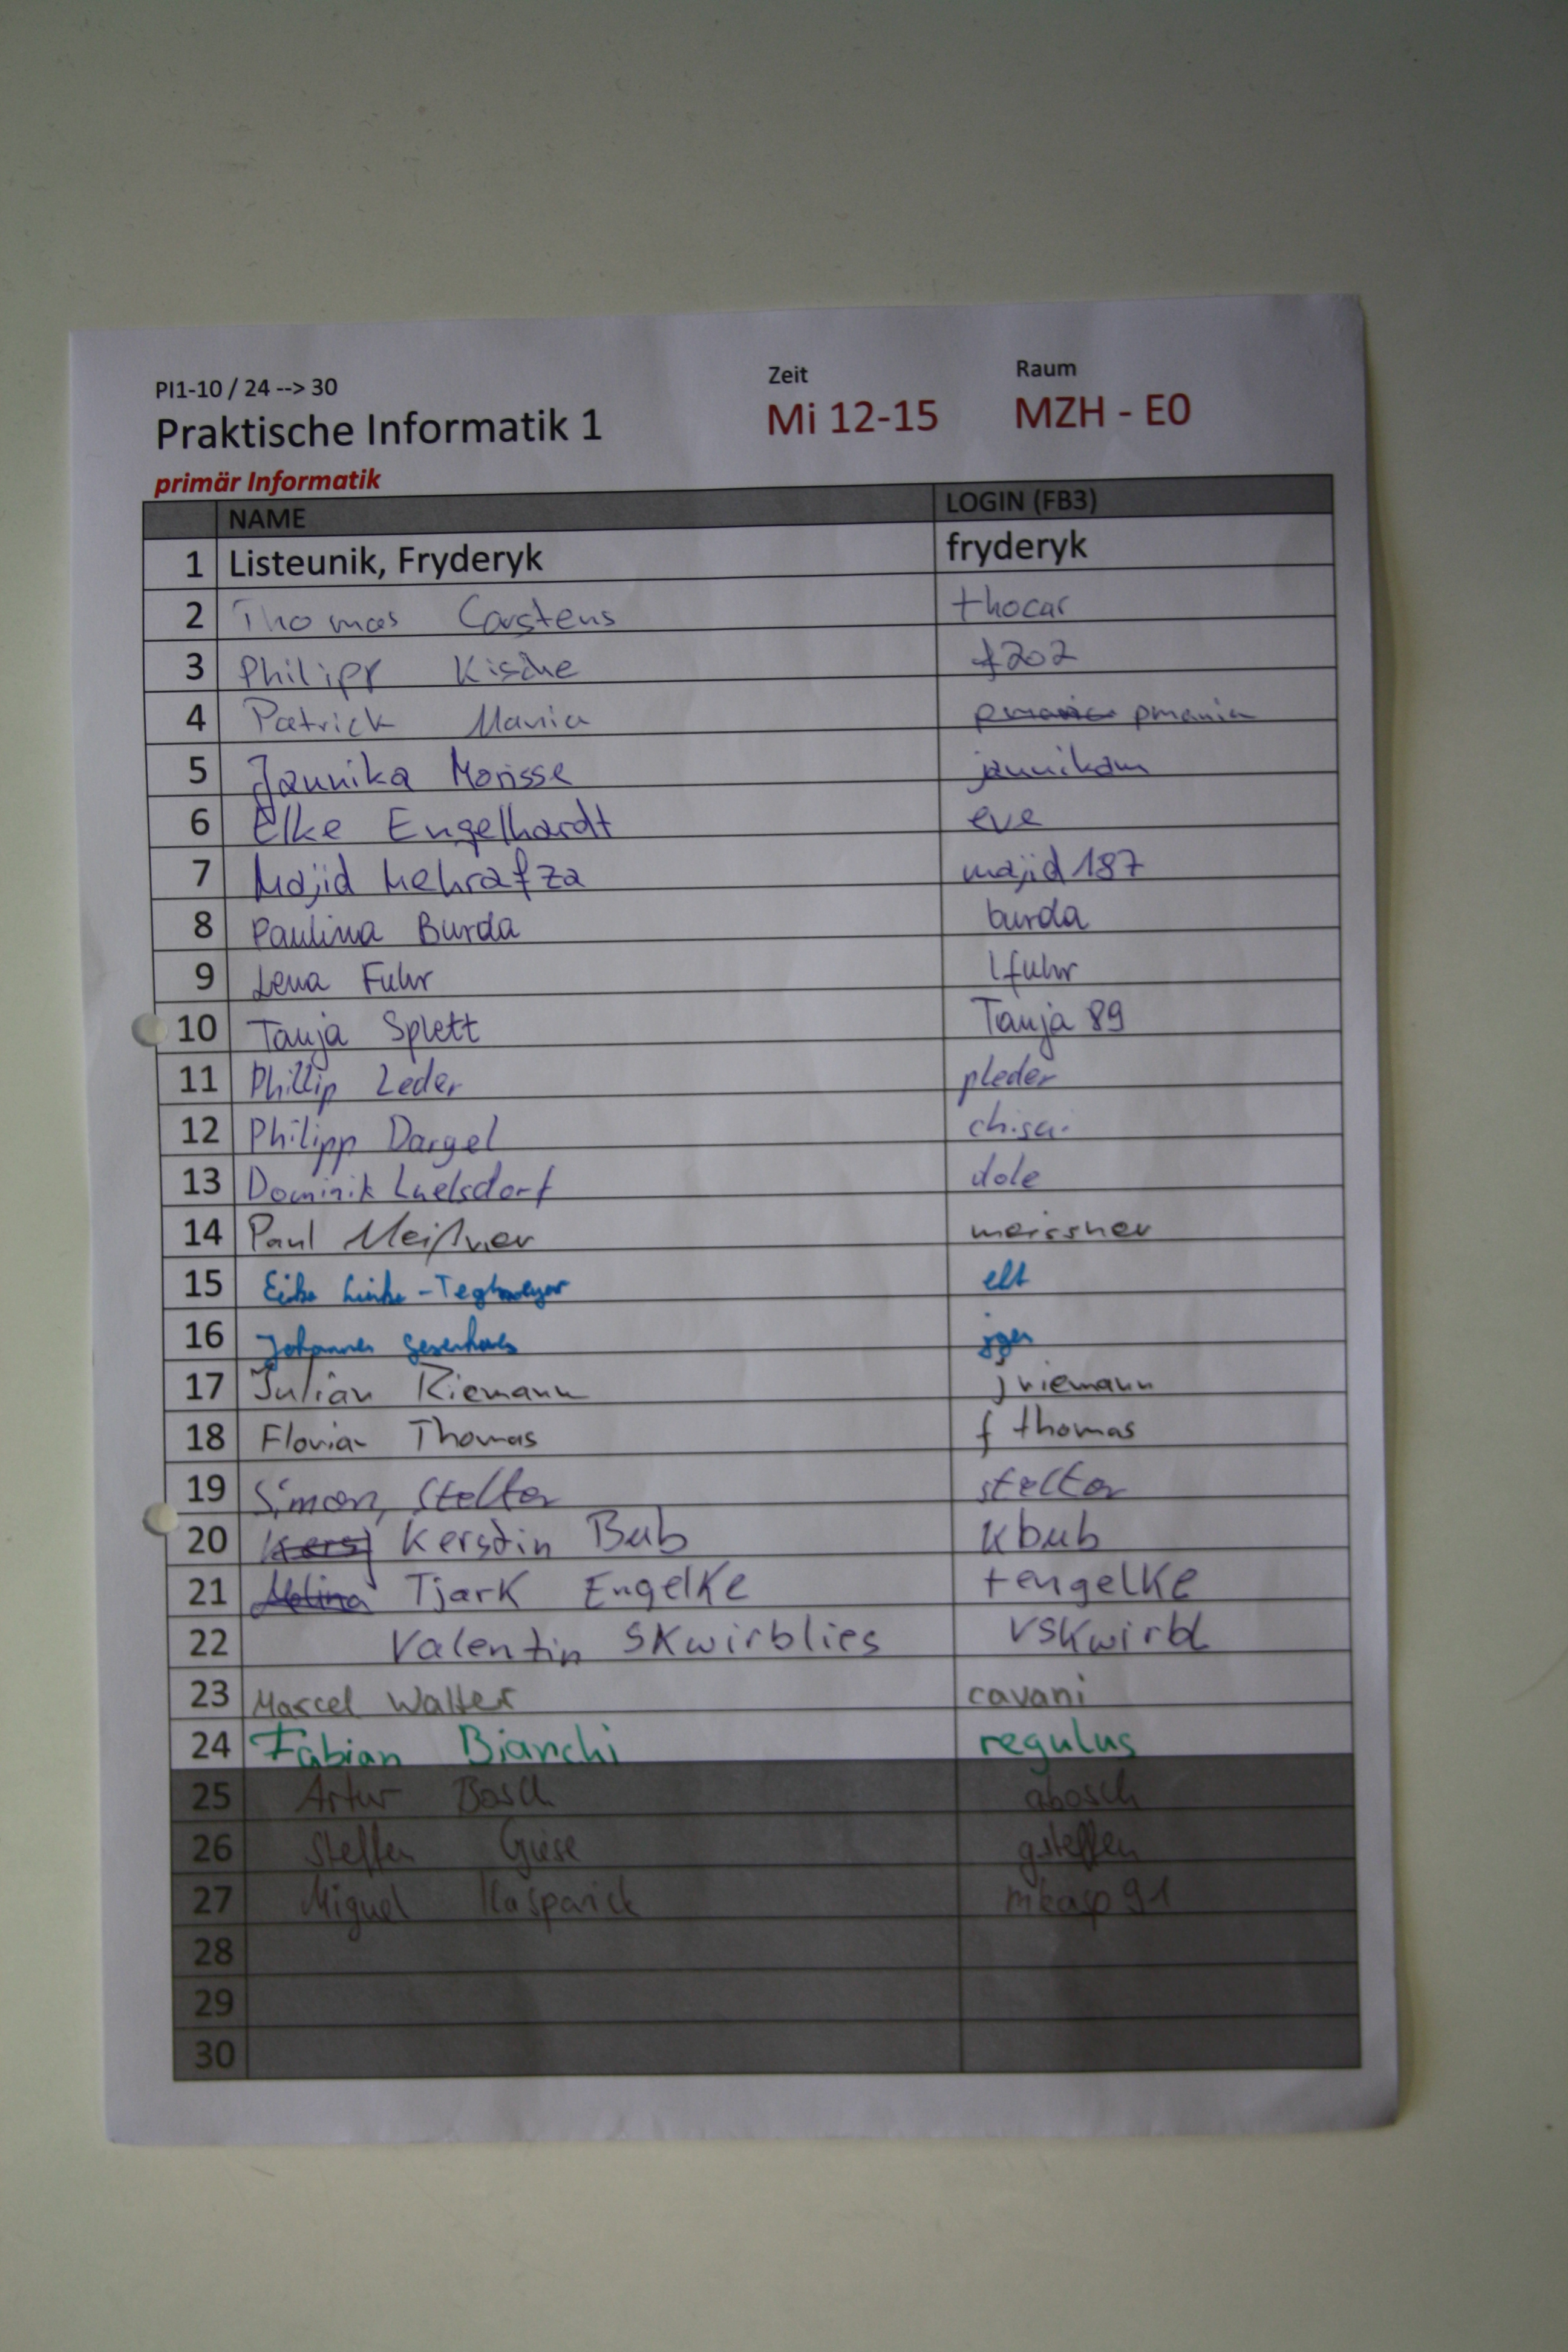 PI1-10 / 24 --> 30 Zeit Raum
Praktische Informatik 1 Mi 12-15 MZH - E0
primär Informatik
NAME LOGIN (FB3)
1 Listeunik, Fryderyk fryderyk
2 Thomas Carstens thocar
3 Philipp Kische f202
4 Patrick Mania pmania
5 Jannika Morisse jannikam
6 Elke Engelhardt eve
7 Majid Mehrafza majid187
8 Paulina Burda burda
9 Lena Fuhr lfuhr
10 Tanja Splett Tanja89
11 Phillip Leder pleder
12 Philipp Dargel chisai
13 Dominik Luelsdorf dole
14 Paul Meißner meissner
15 Eike Linke-Tegtmeyer elt
16 Johannes jges
17 Julian Riemann jriemann
18 Florian Thomas fthomas
19 Simon, Stelter stelter
20 Kerstin Bub kbub
21 Tjark Engelke tengelke
22 Valentin Skwirblies vskwirbl
23 Marcel Walter cavani
24 Fabian Bianchi regulus
25 Artur Bosch abosch
26 Steffen Giese gsteffen
27 Miguel Kasparick mkasp91
28
29
30